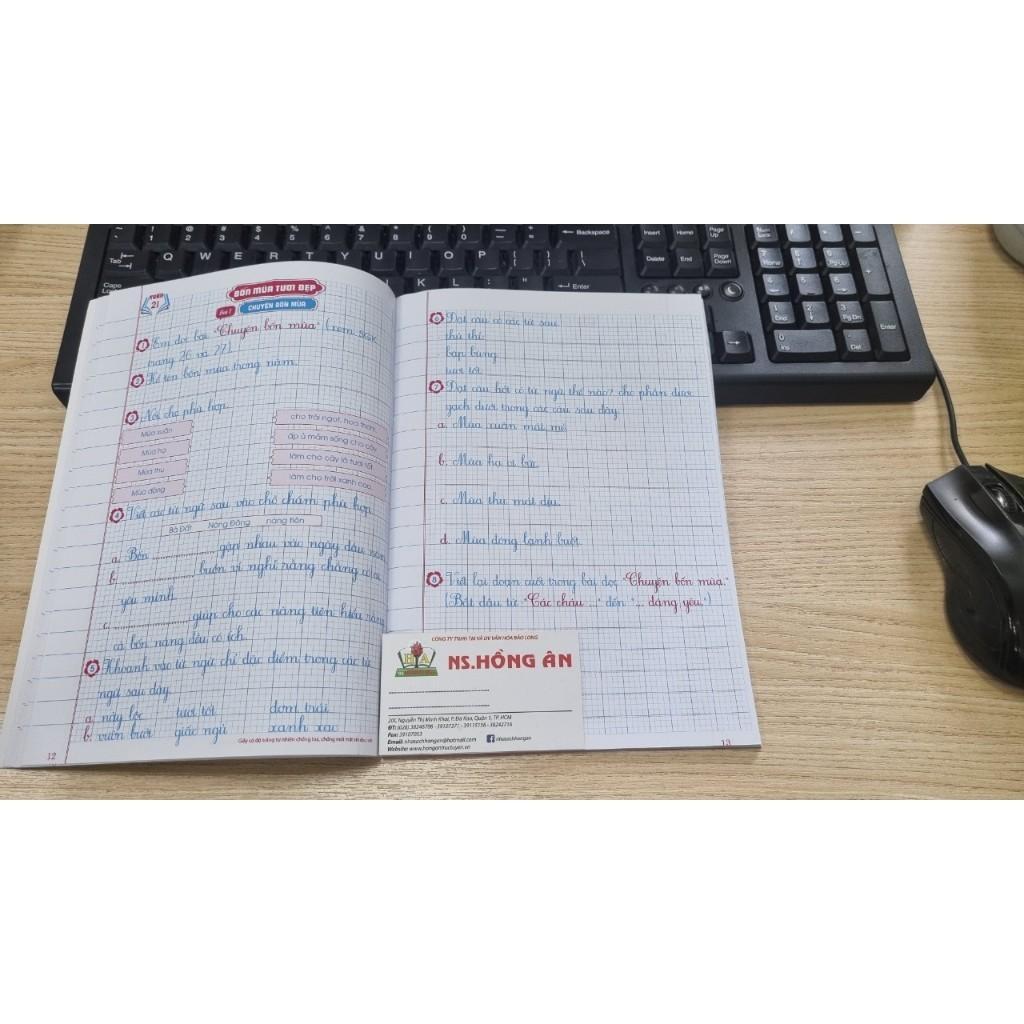 TUẦN
21
BỐN MÙA TƯƠI ĐẸP
Bài 1
CHUYỆN BỐN MÙA
1 Em đọc bài "Chuyện bốn mùa" (xem SGK
trang 26 và 27).
2 Kể tên bốn mùa trong năm.
3 Nối cho phù hợp.
Mùa xuân
Mùa hạ
Mùa thu
Mùa đông
cho trái ngọt, hoa thơm.
ấp ủ mầm sống cho cây
làm cho cây lá tươi tốt.
làm cho trời xanh cao.
4 Viết các từ ngữ sau vào chỗ chấm phù hợp.
Bà Đất Nàng Đông nàng tiên
a. Bốn ............ gặp nhau vào ngày đầu năm
b. ............ buồn vì nghĩ rằng chẳng có ai
yêu mình.
c. ............ giúp cho các nàng tiên hiểu rằng
cả bốn nàng đều có ích.
5 Khoanh vào từ ngữ chỉ đặc điểm trong các từ
ngữ sau đây.
a. nảy lộc tươi tốt đơm trái
b. vườn bưởi giấc ngủ xanh
12
6 Đặt câu có các từ sau:
thủ thỉ:
bập bùng:
tươi tốt:
7 Đặt câu hỏi có từ ngữ thế nào? cho phần được
gạch dưới trong các câu sau đây.
a. Mùa xuân mát mẻ.
b. Mùa hạ oi bức.
c. Mùa thu mát dịu.
d. Mùa đông lạnh buốt.
8 Viết lại đoạn cuối trong bài đọc "Chuyện bốn mùa."
(Bắt đầu từ "Các cháu ..." đến "... đáng yêu.")
13
NS.HỒNG ÂN
20C Nguyễn Thị Minh Khai, P. Đa Kao, Quận 1, TP. HCM
Fax: 39107053
Email: nhasachhongan@hotmail.com
nhasachhongan
~
`
!
1
@
2
#
3
$
4
%
5
^
6
&
7
*
8
(
9
)
0
Backspace
Tab
Q W E R T Y U I O P
Caps
K L
Enter
Insert Home Page Up
Delete End Page Down
Num
7
8
9
4
5
6
1
End
2
3
Pg Dn
0
Ins
Del
Enter